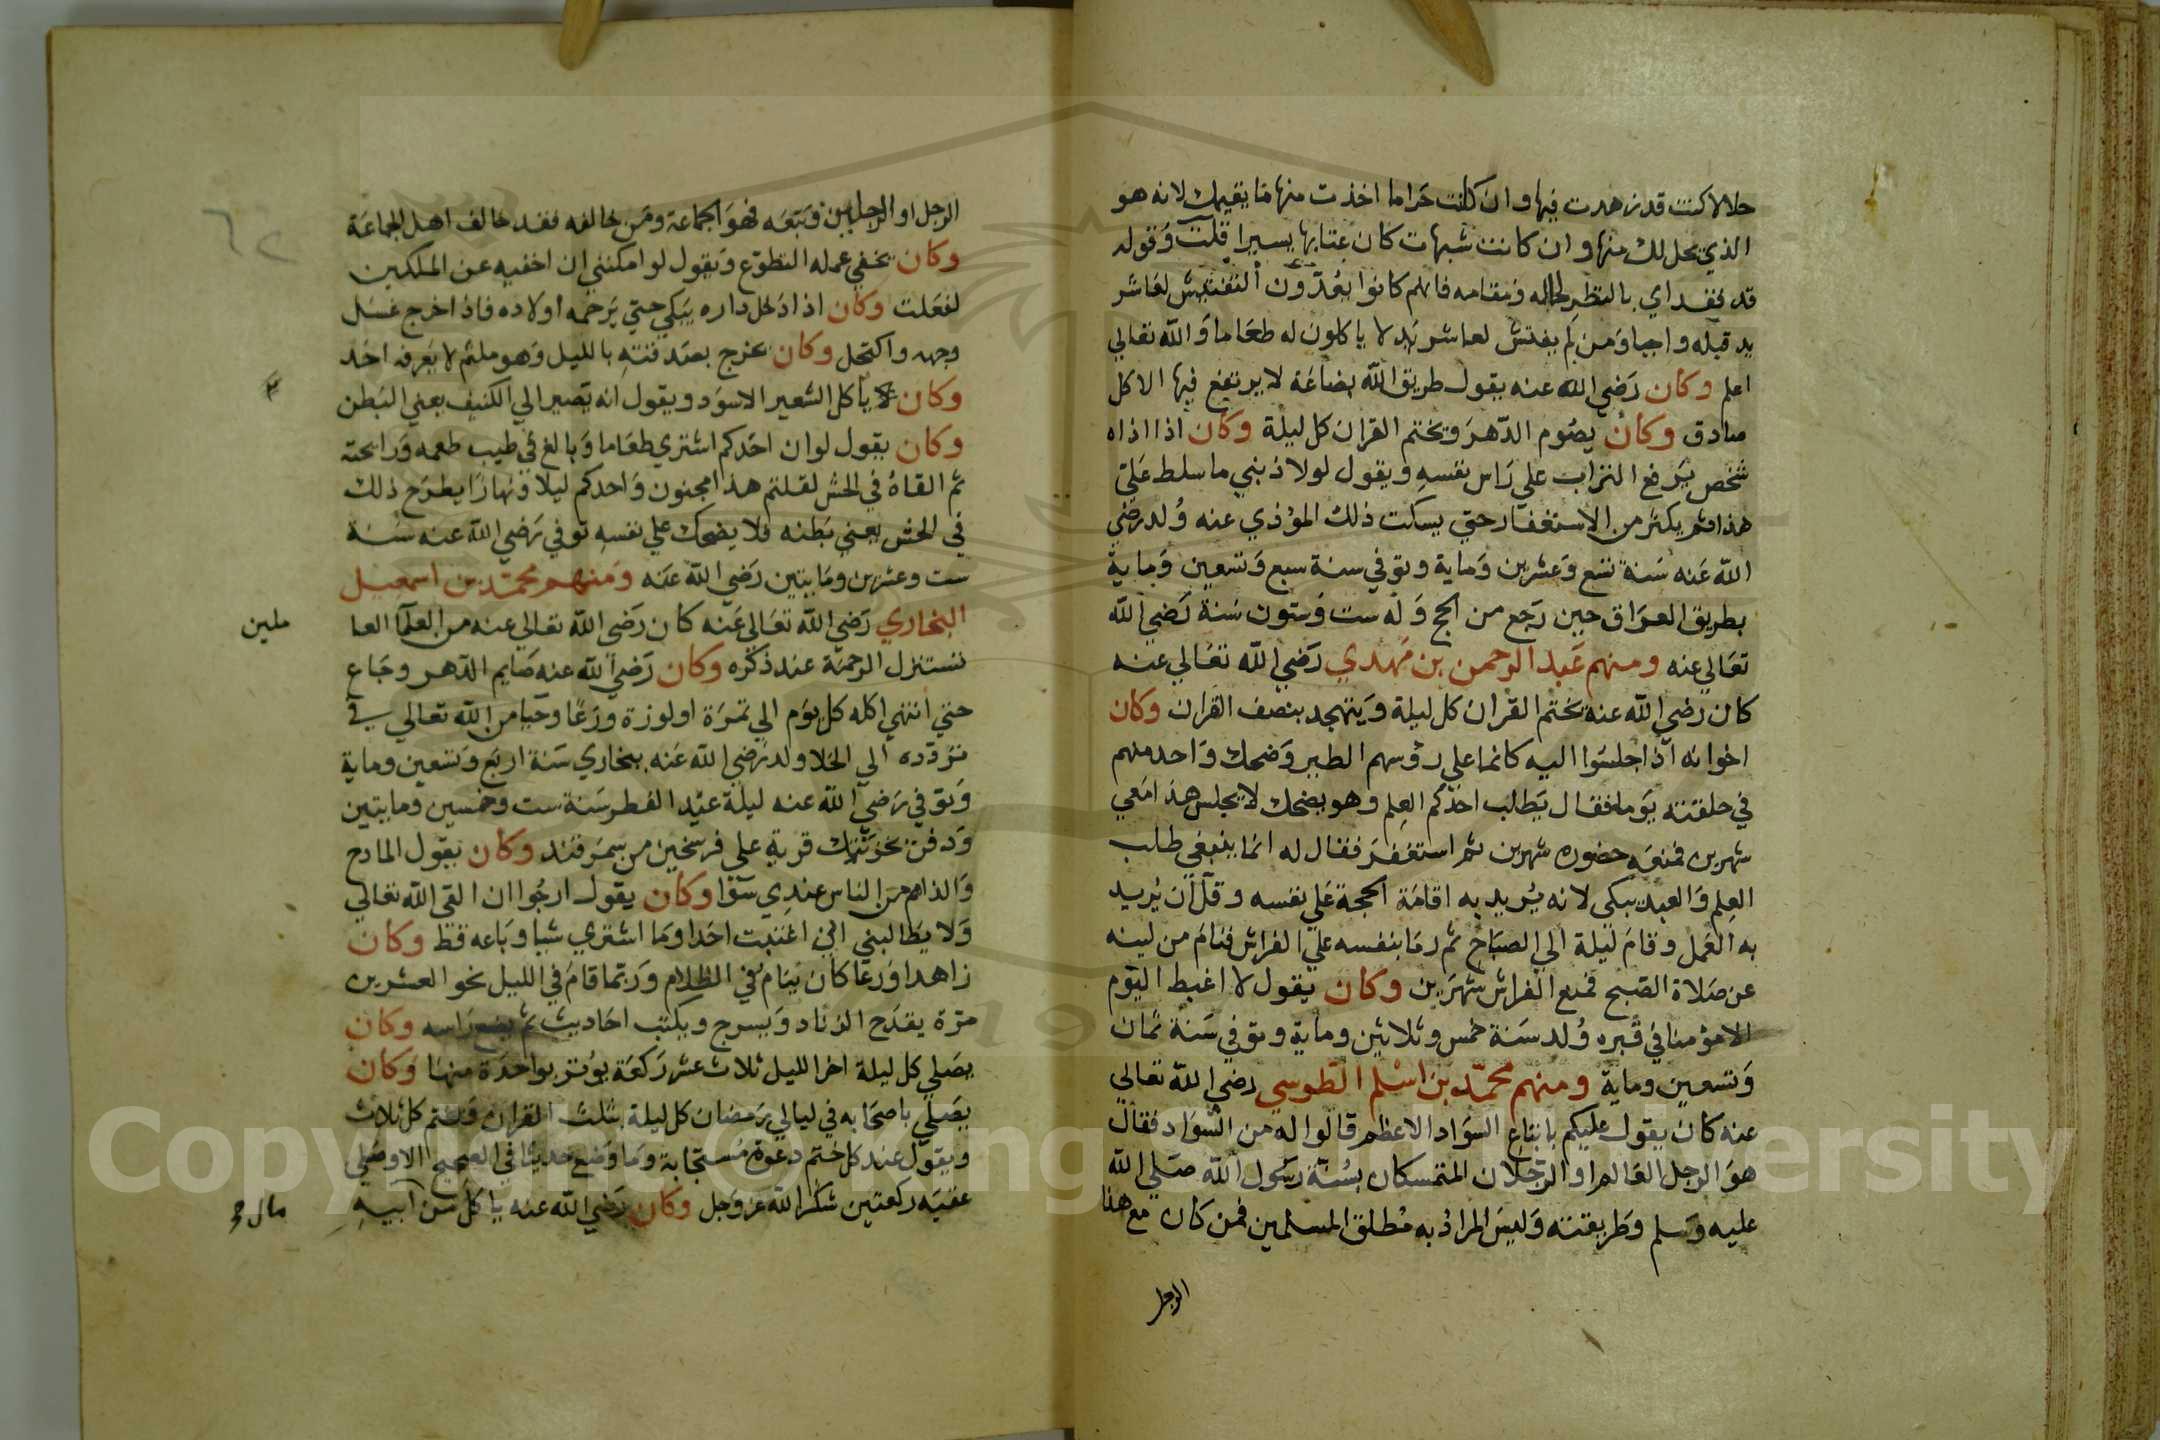 حلالا كنت قد زهدت فيها وان كانت حراما اخذت منها ما يقيمك لانه هو
الذي يحل لك منها وان كانت شبهات كان عتابها يسيرا قلت وقوله
قد تفقد اي بالنظر لحاله ومقامه فانهم كانوا يعدون التفتيش لعاشر
يد قبله واجبا ومن لم يفتش لعاشر يد لا ياكلون له طعاما والله تعالي
اعلم وكان رضي الله عنه يقول طريق الله بضاعة لا يرتفع فيها الا كل
صادق وكان يصوم الدهر ويختم القران كل ليلة وكان اذا اذاه
شخص يرفع التراب علي راس نفسه ويقول لولا ذنبي ما سلط علي
هذا ثم يكثر من الاستغفار حتي يسكت ذلك المؤذي عنه ولد رضي
الله عنه سنة تسع وعشرين وماية وتوفي سنة سبع وتسعين وماية
بطريق العراق حين رجع من الحج وله ست وستون سنة رضي الله
تعالي عنه ومنهم عبد الرحمن بن مهدي رضي الله تعالي عنه
كان رضي الله عنه يختم القران كل ليلة ويتهجد بنصف القران وكان
اخوانه اذا جلسوا اليه كانما علي رؤسهم الطير وضحك واحد منهم
في حلقته يوما فقال يطلب احدكم العلم وهو يضحك لا يجلس هذا معي
شهرين فمنعه حضوره شهرين ثم استغفر فقال له انما ينبغي طلب
العلم والعبد يبكي لانه يريد به اقامة الحجة علي نفسه وقل ان يريد
به العمل وقام ليلة الي الصباح ثم رما بنفسه علي الفراش فنام من لينه
عن صلاة الصبح فمنع الفراش شهرين وكان يقول لا اغبط اليوم
الا مؤمنا في قبره ولد سنة خمس وثلاثين وماية وتوفي سنة ثمان
وتسعين وماية ومنهم محمد بن اسلم الطوسي رضي الله تعالي
عنه كان يقول عليكم باتباع السواد الاعظم قالوا له من السواد فقال
هو الرجل العالم او الرجلان المتمسكان بسنة رسول الله صلي الله
عليه وسلم وطريقته وليس المراد به مطلق المسلمين فمن كان مع هذا
الرجل
الرجل او الرجلين وتبعه فهو الجماعة ومن خالفه فقد خالف اهل الجماعة
وكان يخفي عمله التطوع ويقول لو امكنني ان اخفيه عن الملكين
لفعلت وكان اذا دخل داره يبكي حتي يرحمه اولاده فاذا خرج غسل
وجهه واكتحل وكان يخرج بصدقته بالليل وهو ملثم لا يعرفه احد
وكان ياكل الشعير الاسود ويقول انه يصير الي الكنيف يعني البطن
وكان يقول لو ان احدكم اشتري طعاما وبالغ في طيب طعمه ورائحته
ثم القاه في الحش لقلتم هذا مجنون واحدكم ليلا ونهارا يطرح ذلك
في الحش يعني بطنه فلا يضحك علي نفسه توفي رضي الله عنه سنة
ست وعشرين ومايتين رضي الله عنه ومنهم محمد بن اسمعيل
البخاري رضي الله تعالي عنه كان رضي الله تعالي عنه من العلما العا
ملين
تستنزل الرحمة عند ذكره وكان رضي الله عنه صايم الدهر وجاع
حتي انتهي اكله كل يوم الي تمرة او لوزة ورعا وحيا من الله تعالي في
تردده الي الخلا ولد رضي الله عنه ببخاري سنة اربع وتسعين وماية
وتوفي رضي الله عنه ليلة عيد الفطر سنة ست وخمسين ومايتين
ودفن بخرتنك قرية علي فرسخين من سمرقند وكان يقول المادح
والذام من الناس عندي سوا وكان يقول ارجوا ان القي الله تعالي
ولا يطالبني اني اغتبت احدا وما اشتري شيا وباعه قط وكان
زاهدا ورعا كان ينام في الظلام وربما قام في الليل نحو العشرين
مرة يقدح الزناد ويسرج ويكتب احاديث ثم يضع راسه وكان
يصلي كل ليلة اخر الليل ثلاث عشر ركعة يوتر بواحدة منها وكان
يصلي باصحابه في ليالي رمضان كل ليلة بثلث القران ويختم كل ثلاث
ويقول عند كل ختم دعوة مستجابة وما وضع حديثا في الصحيح الا وصلي
عقبه ركعتين شكرا لله عز وجل وكان رضي الله عنه ياكل من
ابيه
مال
Copyright © King Saud University